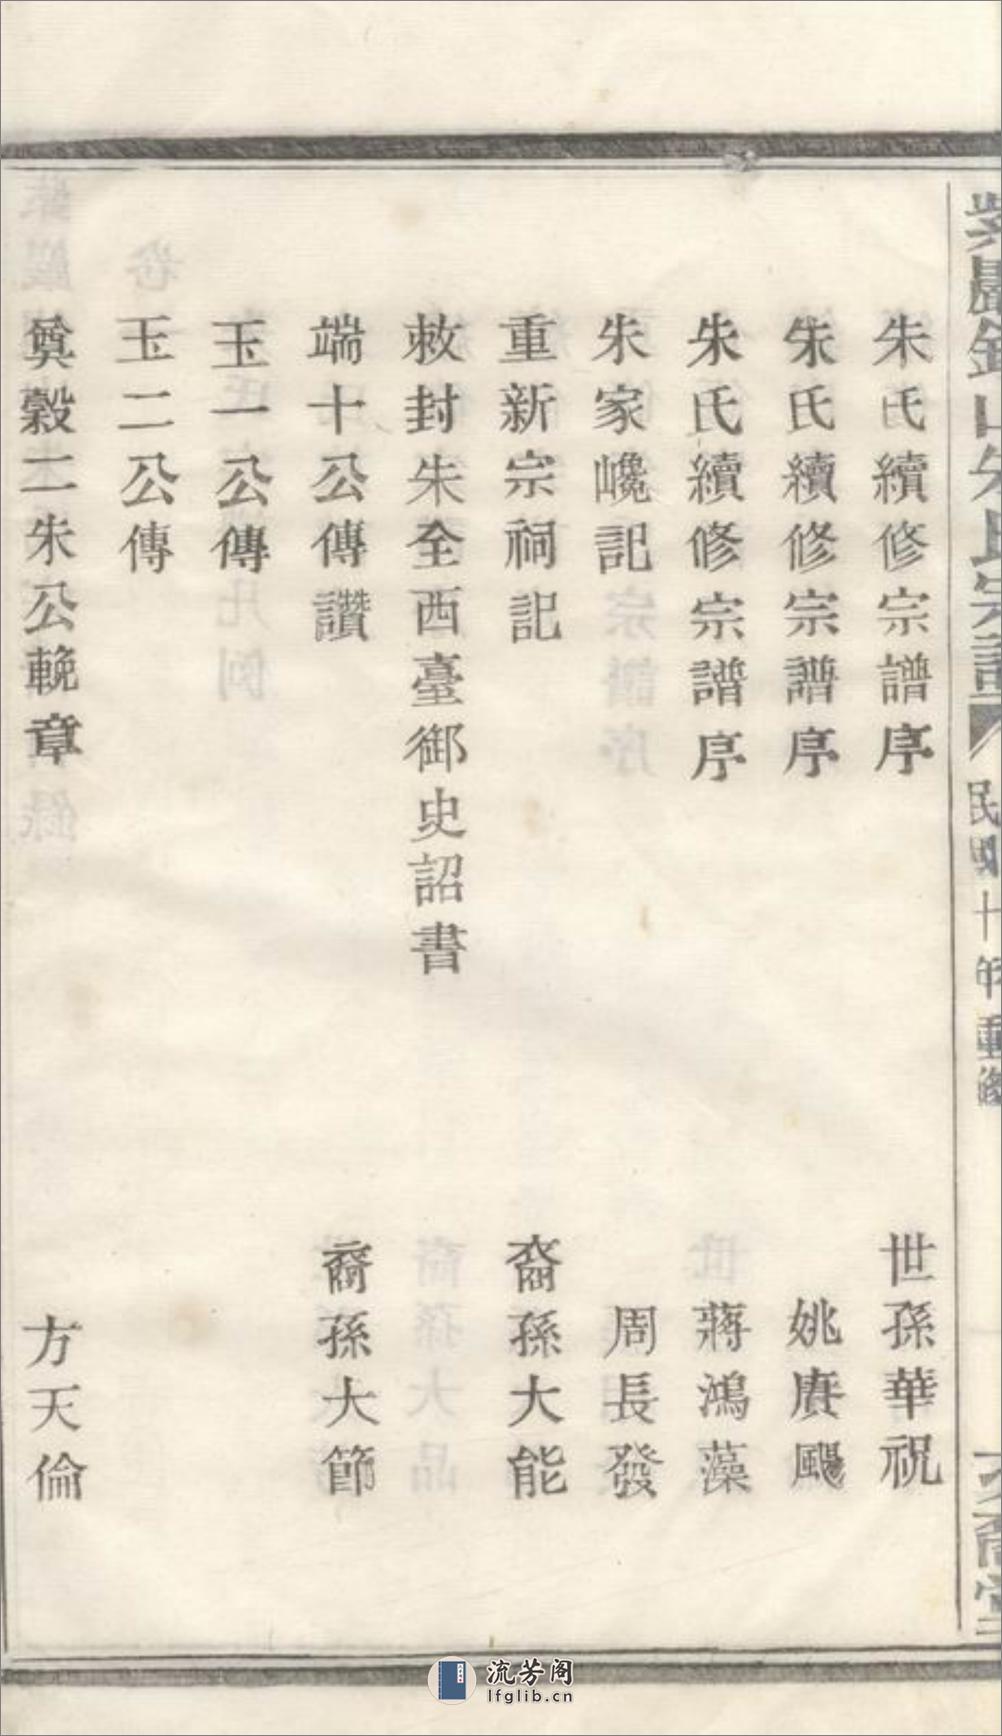 朱氏續修宗譜序 世孫華祝
朱氏續修宗譜序 姚賡颺
朱氏續修宗譜序 蔣鴻藻
朱家巉記 周長發
重新宗祠記 裔孫大能
敕封朱全西臺御史詔書
端十公傳讚 裔孫大節
玉一公傳
玉二公傳
奠穀二朱公輓章 方天倫
流芳阁
lfglib.cn